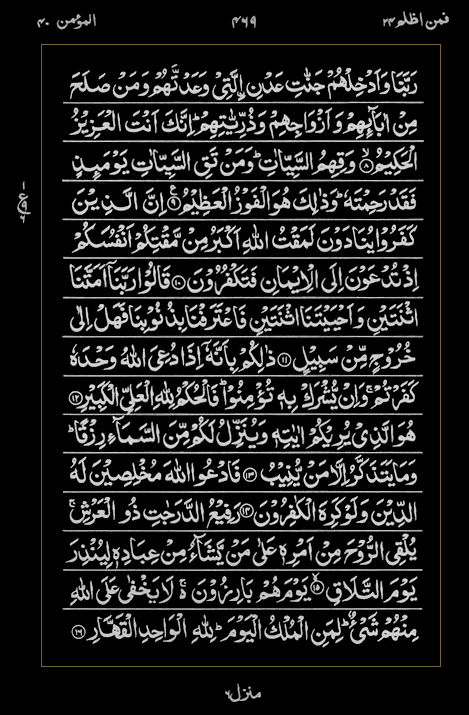 المؤمن ۴۰ ۴۶۹ فمن اظلم ۲۴
رَبَّنَا وَاَدْخِلْهُمْ جَنّٰتِ عَدْنِ ِۨالَّتِیْ وَعَدْتَّهُمْ وَمَنْ صَلَحَ
مِنْ اٰبَآئِهِمْ وَاَزْوَاجِهِمْ وَذُرِّیّٰتِهِمْ ؕ اِنَّكَ اَنْتَ الْعَزِیْزُ
الْحَكِیْمُ ۙ﴿۸﴾ وَقِهِمُ السَّیِّاٰتِ ؕ وَمَنْ تَقِ السَّیِّاٰتِ یَوْمَئِذٍ
فَقَدْ رَحِمْتَهٗ ؕ وَذٰلِكَ هُوَ الْفَوْزُ الْعَظِیْمُ ﴿۹﴾ ع اِنَّ الَّذِیْنَ
كَفَرُوْا یُنَادَوْنَ لَمَقْتُ اللّٰهِ اَكْبَرُ مِنْ مَّقْتِكُمْ اَنْفُسَكُمْ
اِذْ تُدْعَوْنَ اِلَی الْاِیْمَانِ فَتَكْفُرُوْنَ ﴿۱۰﴾ قَالُوْا رَبَّنَاۤ اَمَتَّنَا
اثْنَتَیْنِ وَاَحْیَیْتَنَا اثْنَتَیْنِ فَاعْتَرَفْنَا بِذُنُوْبِنَا فَهَلْ اِلٰی
خُرُوْجٍ مِّنْ سَبِیْلٍ ﴿۱۱﴾ ذٰلِكُمْ بِاَنَّهٗۤ اِذَا دُعِیَ اللّٰهُ وَحْدَهٗ
كَفَرْتُمْ ۚ وَاِنْ یُّشْرَكْ بِهٖ تُؤْمِنُوْا ؕ فَالْحُكْمُ لِلّٰهِ الْعَلِیِّ الْكَبِیْرِ ﴿۱۲﴾
هُوَ الَّذِیْ یُرِیْكُمْ اٰیٰتِهٖ وَیُنَزِّلُ لَكُمْ مِّنَ السَّمَآءِ رِزْقًا ؕ
وَمَا یَتَذَكَّرُ اِلَّا مَنْ یُّنِیْبُ ﴿۱۳﴾ فَادْعُوا اللّٰهَ مُخْلِصِیْنَ لَهُ
الدِّیْنَ وَلَوْ كَرِهَ الْكٰفِرُوْنَ ﴿۱۴﴾ رَفِیْعُ الدَّرَجٰتِ ذُو الْعَرْشِ ۚ
یُلْقِی الرُّوْحَ مِنْ اَمْرِهٖ عَلٰی مَنْ یَّشَآءُ مِنْ عِبَادِهٖ لِیُنْذِرَ
یَوْمَ التَّلَاقِ ۙ﴿۱۵﴾ یَوْمَ هُمْ بَارِزُوْنَ ۚ۬ لَا یَخْفٰی عَلَی اللّٰهِ
مِنْهُمْ شَیْءٌ ؕ لِمَنِ الْمُلْكُ الْیَوْمَ ؕ لِلّٰهِ الْوَاحِدِ الْقَهَّارِ ﴿۱۶﴾
منزل ۶